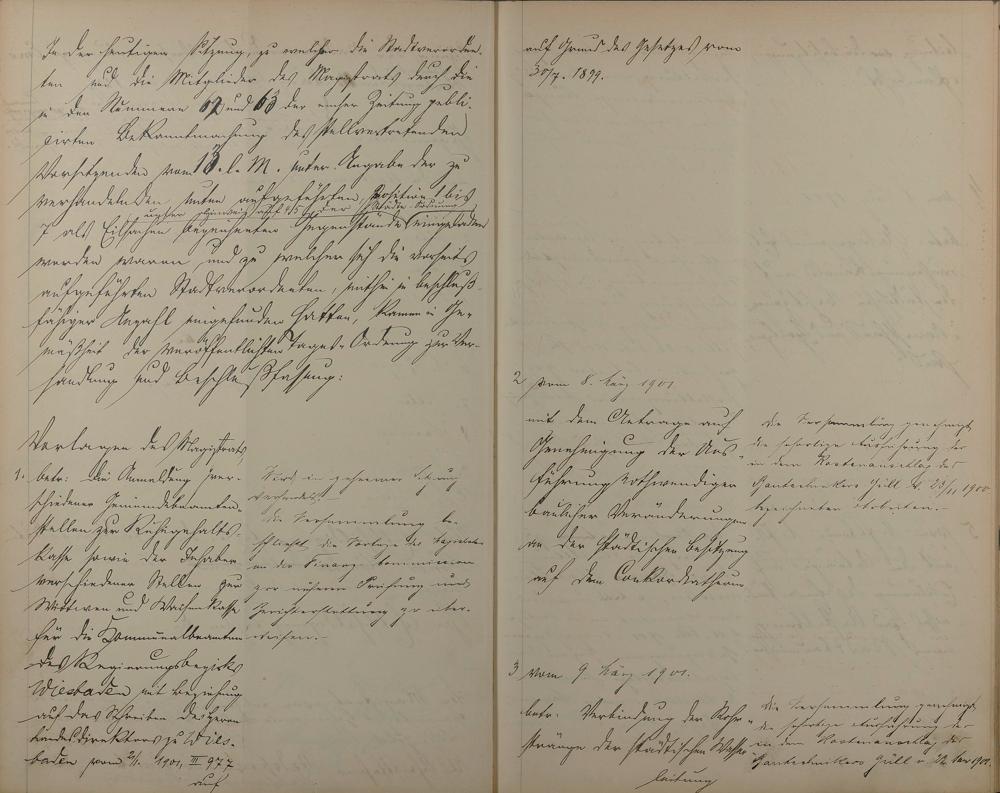 In der heutigen Sitzung, zu welcher die Stadtverordne-
ten und die Mitglieder des Magistrats durch die
in den Nummern 62 und 63 der emser Zeitung publi-
cirten Bekanntmachung des stellvertretenden
Vorsitzenden vom 13. l. M. unter Angabe der zu
verhandelnden, unten aufgeführten, Position 1 bis
7 als Eilsachen bezeichneten Gegenstände eingeladen
worden waren und zu welcher sich die vorseits
aufgeführten Stadtverordneten, mithin in beschluß-
fähiger Anzahl eingefunden hatten, kamen in Ge-
mäßheit der veröffentlichten Tages-Ordnung zur Ver-
handlung und Beschlußfassung:
Vorlagen des Magistrats
1. betr. die Anmeldung ver-
schiedener Gemeindebeamten-
stellen zur Ruhegehalts-
kasse sowie der Inhaber
verschiedener Stellen zur
Wittwen und Waisenkasse
für die Kommunalbeamten
des Regierungsbezirks
Wiesbaden mit Beziehung
auf das Schreiben des Herrn
Landesdirektors zu Wies-
baden vom 2/1. 1901, III 977
auf
Wird in geheimer Sitzung
verhandelt.
Die Versammlung be-
schließt, die Vorlage des Magistrats
an die Finanz-Commission
zur näheren Prüfung und
Berichterstattung zu über-
weisen.-
auf Grund des Gesetzes vom
30/7. 1899.
2 vom 8. März 1901
mit dem Antrage auf
Genehmigung der Aus-
führung nothwendiger
baulicher Veränderungen
an der städtischen Besitzung
auf dem Conkordiathurm
Die Versammlung genehmigt
die sofortige Ausführung der
in dem Kostenanschlag des
Bautechnikers Güll v. 23/11 1900
bezeichneten Arbeiten.-
3 vom 9. März 1901.
betr. Verbindung der Rohr-
stränge der städtischen Wasser-
leitung
Die Versammlung genehmigt
die sofortige Ausführung der
in dem Kostenanschlag des
Bautechnikers Güll v. 1901.